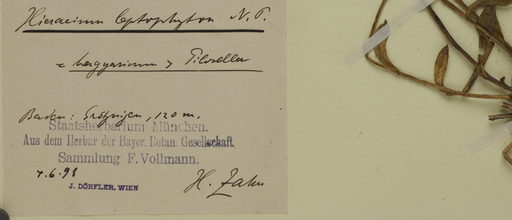 Hieracium leptophyton N. P.
= magyaricum > Pilosella
Baden: Grötzingen, 120 m.
Staatsherbarium München.
Aus dem Herbar der Bayer. Botan. Gesellschaft.
Sammlung F. Vollmann.
7.6.98
J. DÖRFLER, WIEN
H. Zahn